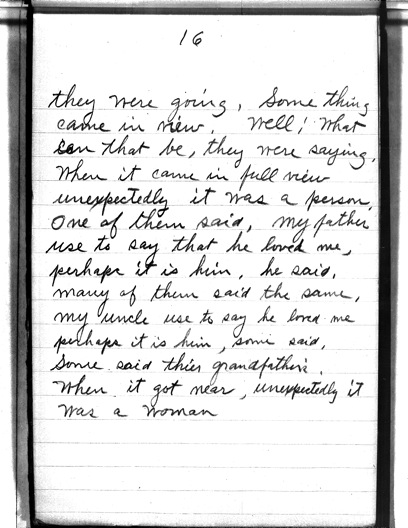 16
they were going. Some thing
came in view. Well! What
can that be, they were saying.
When it came in full view
unexpectedly it was a person.
One of them said, my father
use to say that he loved me,
perhaps it is him, he said.
many of them said the same.
my uncle use to say he loved me
perhaps it is him, some said.
Some said thier grandfather's.
When it got near, unexpectedly it
was a woman